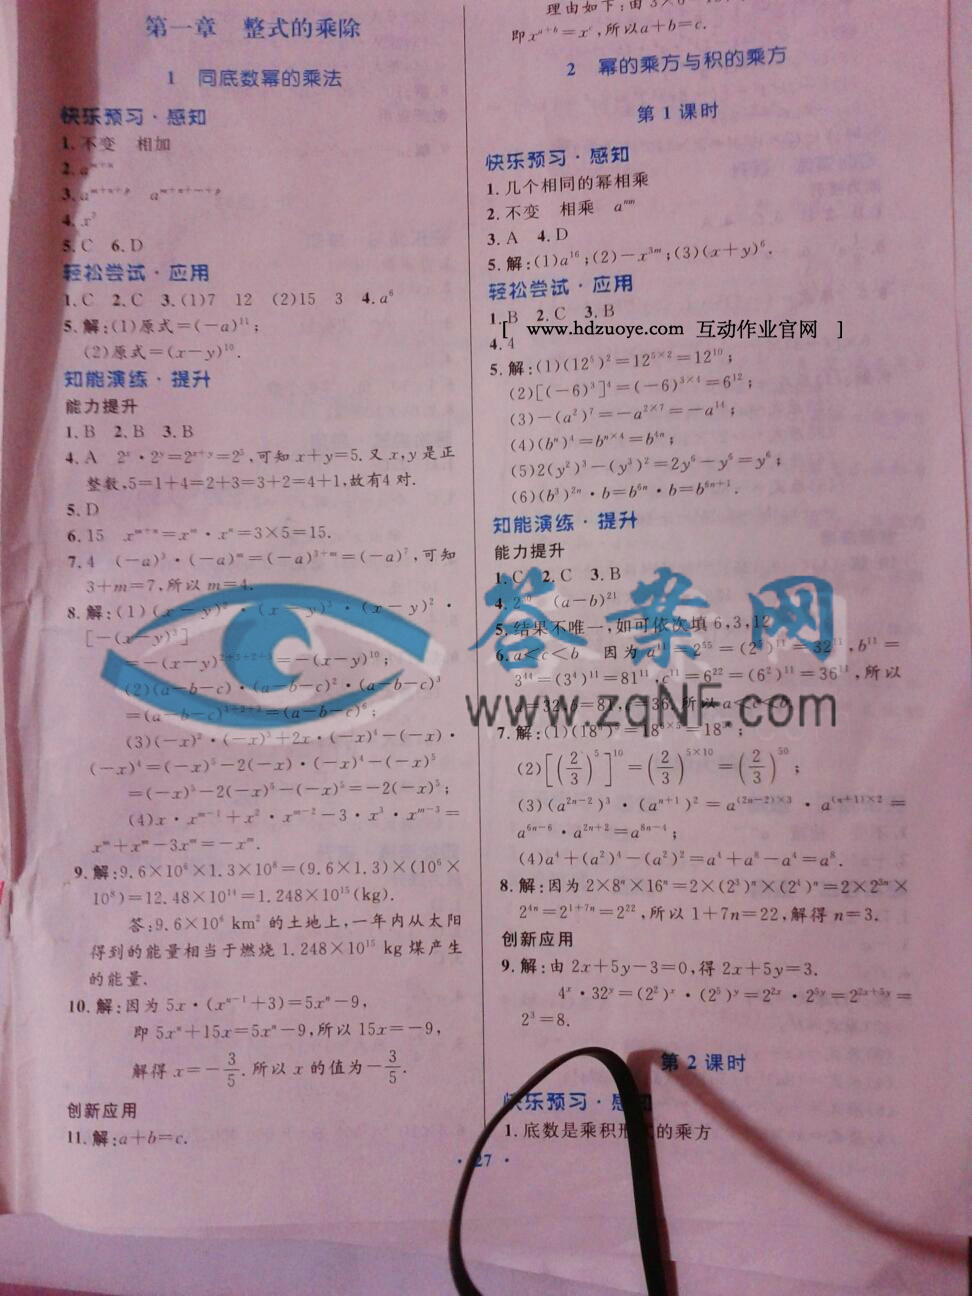 第一章 整式的乘除
1 同底数幂的乘法
快乐预习·感知
1.不变 相加
2.a^{m+n}
3.a^{m+n+p} a^{m+n+…+p}
5.C 6.D
轻松尝试·应用
1.C 2.C 3.(1)7 12 (2)15 3 4.a⁶
5.解:(1)原式=(-a)¹¹;
(2)原式=(x-y)¹⁰.
知能演练·提升
能力提升
1.B 2.B 3.B
4.A 2ˣ·2ʸ=2ˣ⁺ʸ=2⁵,可知x+y=5.又x,y是正
整数,5=1+4=2+3=3+2=4+1,故有4对.
5.D
6.15 x^{m+n}=x^m·x^n=3×5=15.
7.4 (-a)³·(-a)^m=(-a)^{3+m}=(-a)⁷,可知
3+m=7,所以m=4.
8.解:(1)(x-y)²·(x-y)³·(x-y)²·
[-(x-y)³]
=-(x-y)^{2+3+2+3}=-(x-y)¹⁰;
(2)(a-b-c)·(a-b-c)²·(a-b-c)³
=(a-b-c)^{1+2+3}=(a-b-c)⁶;
(3)(-x)²·(-x)³+2x·(-x)⁴-(-x)·
(-x)⁴=(-x)⁵-2(-x)·(-x)⁴-(-x)⁵
=(-x)⁵-2(-x)⁵-(-x)⁵=-2(-x)⁵;
(4)x·x^{m-1}+x²·x^{m-2}-3·x³·x^{m-3}=
x^m+x^m-3x^m=-x^m.
9.解:9.6×10⁶×1.3×10⁸=(9.6×1.3)×(10⁶×
10⁸)=12.48×10¹⁴=1.248×10¹⁵(kg).
答:9.6×10⁶ km²的土地上,一年内从太阳
得到的能量相当于燃烧1.248×10¹⁵ kg煤产生
的能量.
10.解:因为5x·(x^{n-1}+3)=5x^n-9,
即5x^n+15x=5x^n-9,所以15x=-9,
解得x=-3/5.所以x的值为-3/5.
创新应用
11.解:a+b=c.
即x^{a+b}=x^c,所以a+b=c.
2 幂的乘方与积的乘方
第1课时
快乐预习·感知
1.几个相同的幂相乘
2.不变 相乘 a^{nm}
3.A 4.D
5.解:(1)a¹⁶;(2)-x^{3m};(3)(x+y)⁶.
轻松尝试·应用
1.B 2.C 3.B
[ www.hdzuoye.com 互动作业官网 ]
4.4
5.解:(1)(12⁵)²=12^{5×2}=12¹⁰;
(2)[(-6)³]⁴=(-6)^{3×4}=6¹²;
(3)-(a²)⁷=-a^{2×7}=-a¹⁴;
(4)(b^n)⁴=b^{n×4}=b^{4n};
(5)2(y²)³-(y³)²=2y⁶-y⁶=y⁶;
(6)(b³)^{2n}·b=b^{6n}·b=b^{6n+1}.
知能演练·提升
能力提升
1.C 2.C 3.B
(a-b)²¹
5.结果不唯一,如可依次填6,3,12
6.a<c<b 因为a¹¹=2⁵⁵=(2⁵)¹¹=32¹¹,b¹¹=
3⁴⁴=(3⁴)¹¹=81¹¹,c¹¹=6²²=(6²)¹¹=36¹¹,所以
所以a<c<b.
答案网
www.zqNF.com
(2)[(2/3)⁵]¹⁰=(2/3)^{5×10}=(2/3)⁵⁰;
(3)(a^{2n-2})³·(a^{n+1})²=a^{(2n-2)×3}·a^{(n+1)×2}=
a^{6n-6}·a^{2n+2}=a^{8n-4};
(4)a⁴+(a²)⁴-(a²)²=a⁴+a⁸-a⁴=a⁸.
8.解:因为2×8^n×16^n=2×(2³)^n×(2⁴)^n=2×2^{3n}×
2^{4n}=2^{1+7n}=2²²,所以1+7n=22,解得n=3.
创新应用
9.解:由2x+5y-3=0,得2x+5y=3.
4ˣ·32ʸ=(2²)ˣ·(2⁵)ʸ=2^{2x}·2^{5y}=2^{2x+5y}=
2³=8.
第2课时
快乐预习·感知
1.底数是乘积形式的乘方
·27·